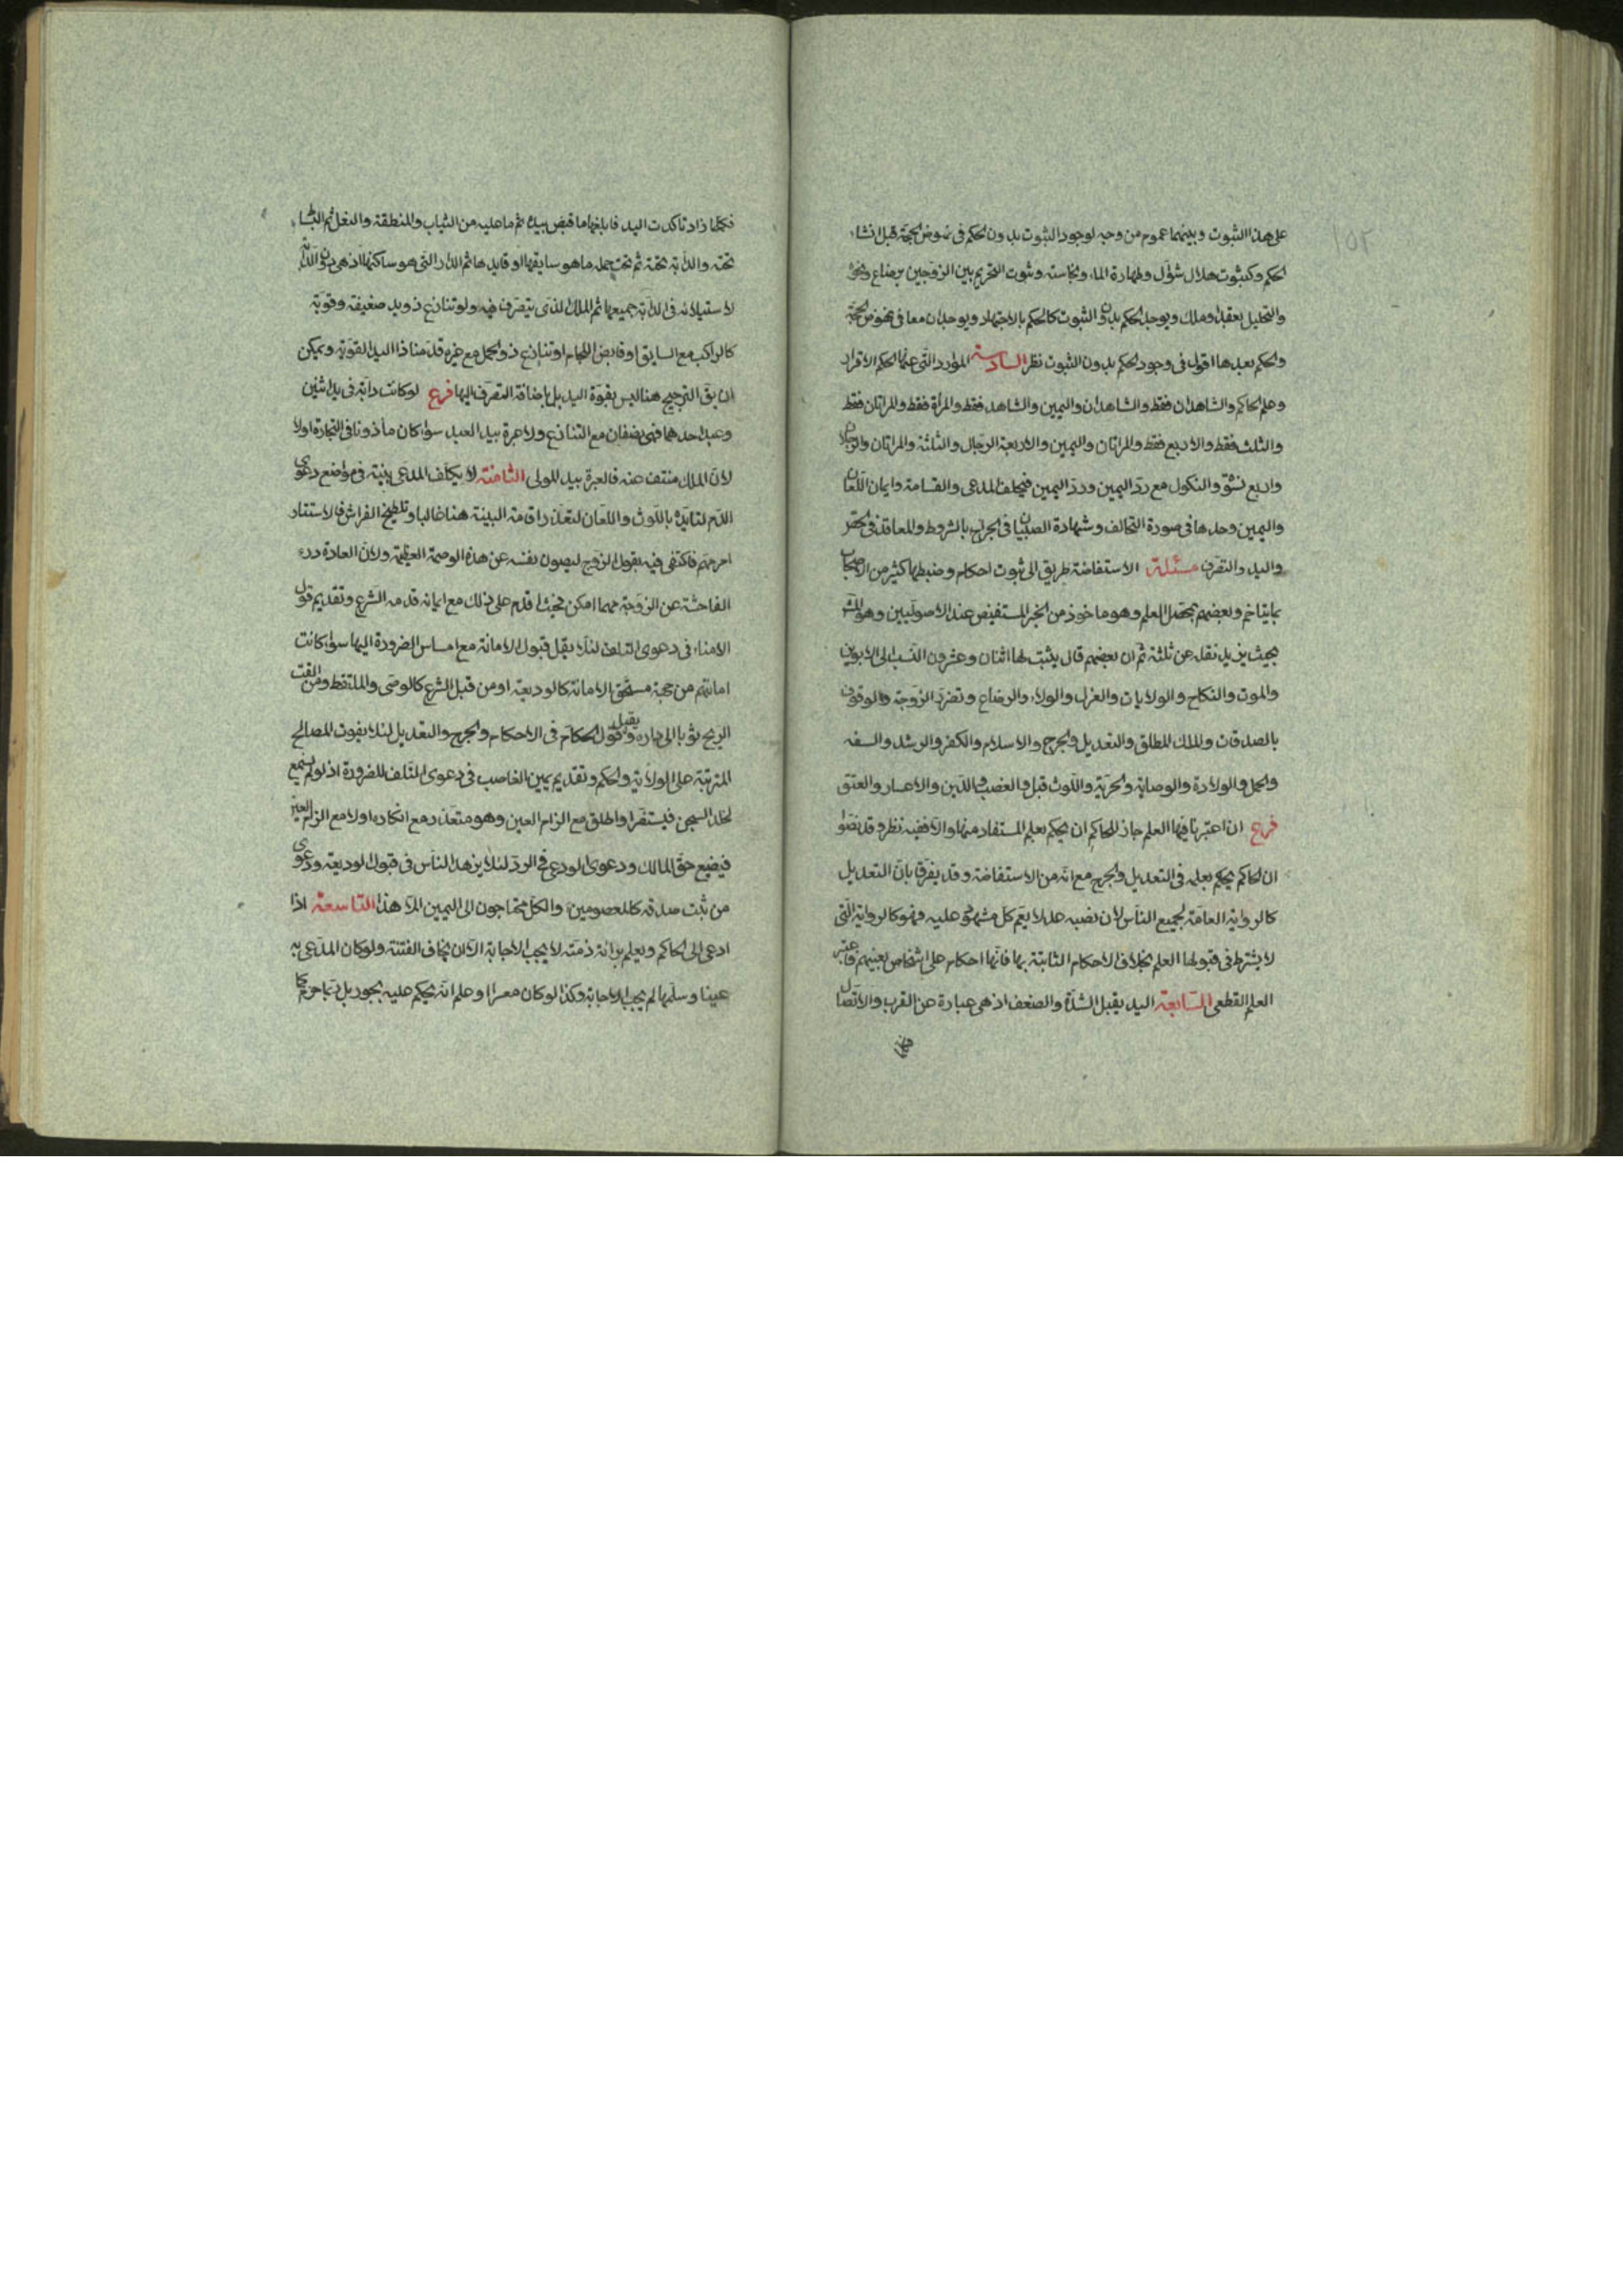 ١٥٢
على هذا الثبوت وبينهما عموم من وجه لوجود الثبوت بدون الحكم فى نهوض الحجة قبل انشاء
الحكم وكثبوت هلال شوّال وطهارة الماء ونجاسته وثبوت التحريم بين الزوجين برضاع ونحوه
والتحليل بعقد او ملك ويوجد الحكم بدون الثبوت كالحكم بالاجتهاد ويوجدان معا فى نهوض الحجّة
والحكم بعدها اقول فى وجود الحكم بدون الثبوت نظر السادسة الموارد التى عنها الحكم الاقرار
وعلم الحاكم والشاهدان فقط والشاهدان واليمين والشاهد فقط والمرأة فقط والمراتان فقط
والثلث فقط والاربع فقط والمراتان واليمين والاربعة الرّجال والثلثة والمراتان والرجلان
واربع نسوة والنكول مع ردّ اليمين وردّ اليمين فيحلف المدعى والقسامة وايمان اللّعان
واليمين وحدها فى صورة التحالف وشهادة الصبيان فى الجراح بالشروط والمعاقد فى الخصّ
واليد والتصرّف مسئلة الاستفاضة طريق الى ثبوت احكام وضبطها كثير من الاصحاب
بما يتاخم وبعضهم بمحصّل العلم وهو ماخوذ من الخبر المستفيض عند الاصوليين وهو المشهور
بحيث يزيد نقله عن ثلثة ثم ان بعضهم قال يثبت لها اثنان وعشرون النّسب الى الابوين
والموت والنكاح والولايات والعزل والولاء والرضاع وتضرّر الزوجة والوقوف
بالصدقات والملك المطلق والتعديل والجرح والاسلام والكفر والرشد والسفه
والحمل والولادة والوصاية والحرّيّة واللّوث قيل والغصب والدّين والاعسار والعتق
فرع ان اعتبرنا فيها العلم جاز للحاكم ان يحكم بعلم المستفاد منها والا ففيه نظر وقد نصّوا
ان الحاكم يحكم بعلمه فى التعديل والجرح مع انّه من الاستفاضة وقد يفرّق بانّ التعديل
كالرواية العامّة لجميع الناس لان نصبه عدلا يعمّ كلّ مشهود عليه فهو كالرواية الّتى
لا يشترط فى قبولها العلم بخلاف الاحكام الثابتة بها فانّها احكام على اشخاص بعينهم فاعتبر
العلم القطعى السّابعة اليد يقبل الشدّة والضعف اذ هى عبارة عن القرب والاتّصال
فكلّما
فكلّما زاد تاكدت اليد فابلغها ما قبض بيده ثم ما عليه من الثياب والمنطقة والنعل ثم البساط
تحته والدابّة تحته ثم تحت حمله ما هو سايقها او قايدها ثم الدّار الّتى هو ساكنها اذ هى دون الدّابّة
لاستيلائه فى الدّابّة جميعها ثم الملك الّذى يتصرّف فيه ولو تنازع ذو يد ضعيفة وقويّة
كالراكب مع السايق او قابض اللّجام او تنازع ذو الحمل مع غيره قدّمنا ذا اليد القويّة ويمكن
ان يق الترجيح هنا ليس بقوّة اليد بل باضافة التصرّف اليها فرع لو كانت دابّة فى يد اثنين
وعبد احدهما فهى نصفان مع التنازع ولا عبرة بيد العبد سواء كان مأذونا فى التجارة اولا
لان الملك منتف عنه فالعبرة بيد المولى الثامنة لا يكلّف المدّعى ببيّنة فى مواضع دعوى
الدّم لتايده باللّوث واللّعان لتعذّر اقامة البيّنة هنا غالبا وتلطيخ الفراش فالاستتار
امر مهمّ فاكتفى فيه بقول الزوج ليصون نفسه عن هذه الوصمة العظيمة ولان العادة درء
الفاحشة عن الزوجة مهما امكن فحيث اقدم على ذلك مع ايمانه قدمه الشرع وتقديم قول
الامناء فى دعوى التلف لئلّا يقلّ قبول الامانة مع امساس الضرورة اليها سواء كانت
امانتهم من جهة مستحق الامانة كالوديعة او من قبل الشرع كالوصى والملتقط ومن القت
الريح ثوبا الى داره ويقبل قول الحكام فى الاحكام والجرح والتعديل لئلا يفوت المصالح
المترتبة على الولاية والحكم وتقديم يمين الغاصب فى دعوى التلف للضرورة اذ لو لم يسمع
لخلد السجن فيستضرّ او اطلق مع الزام العين وهو متعذّر مع انكاره اولا مع الزام العين
فيضيع حقّ المالك ودعوى الودعى فى الردّ لئلا يزهد الناس فى قبول الوديعة ودعوى
من ثبت صدقه كالمعصومين والكلّ محتاجون الى اليمين الا هذا التاسعة اذا
ادعى الى الحاكم ويعلم برائة ذمّته لا يجب الاجابة الا ان يخاف الفتنة ولو كان المدّعى به
عينا وسلّمها لم يجب الاجابة وكذا لو كان معسرا وعلم انّه يحكم عليه بجور بل ربّما حرم كما